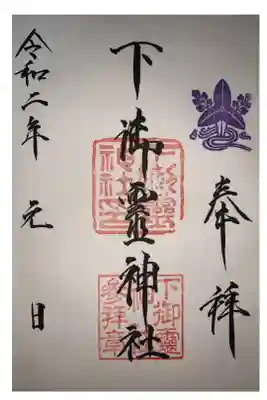 奉拝
下御霊神社
下御靈神社印
下御靈神社参拝章
令和二年 元日